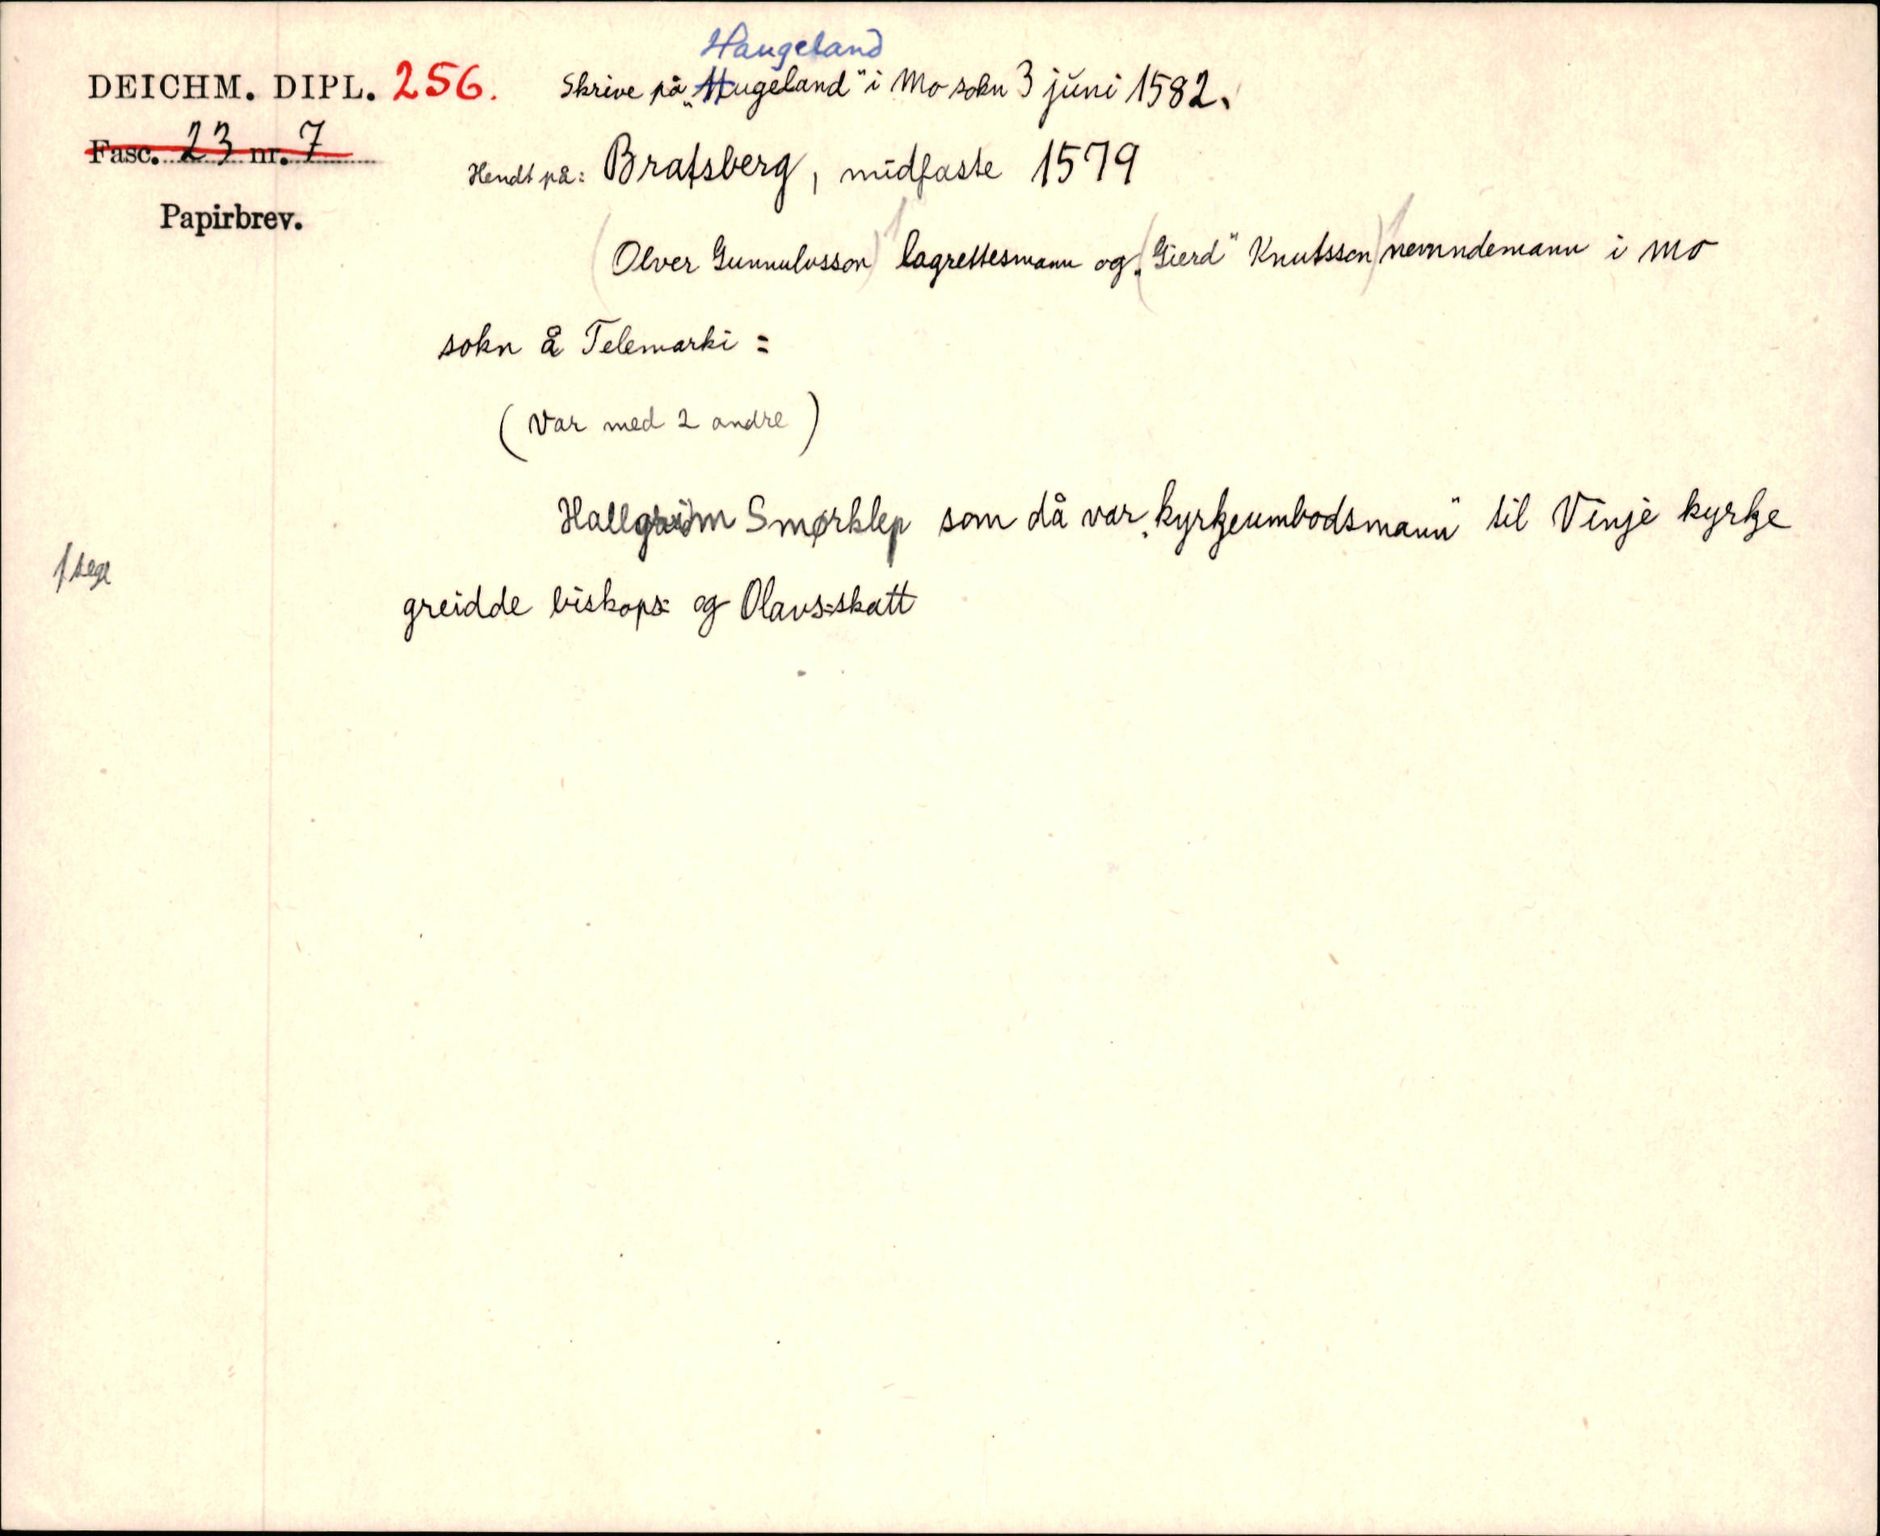 Haugeland
DEICHM. DIPL. 256. Skrive på „Hugeland" i Mo sokn 3 juni 1582.
Fasc. 23 nr. 7
Hendt på: Bratsberg, midfaste 1579
Papirbrev.
(Olver Gunnulvsson) lagrettesmann og („Gierd" Knutsson) nemndemann i Mo
sokn å Telemarki =
(Var med 2 andre)
Hallgrim Smørklep som då var „kyrkjeumbodsmann" til Vinje kyrkje
greidde biskops= og Olavs=skatt